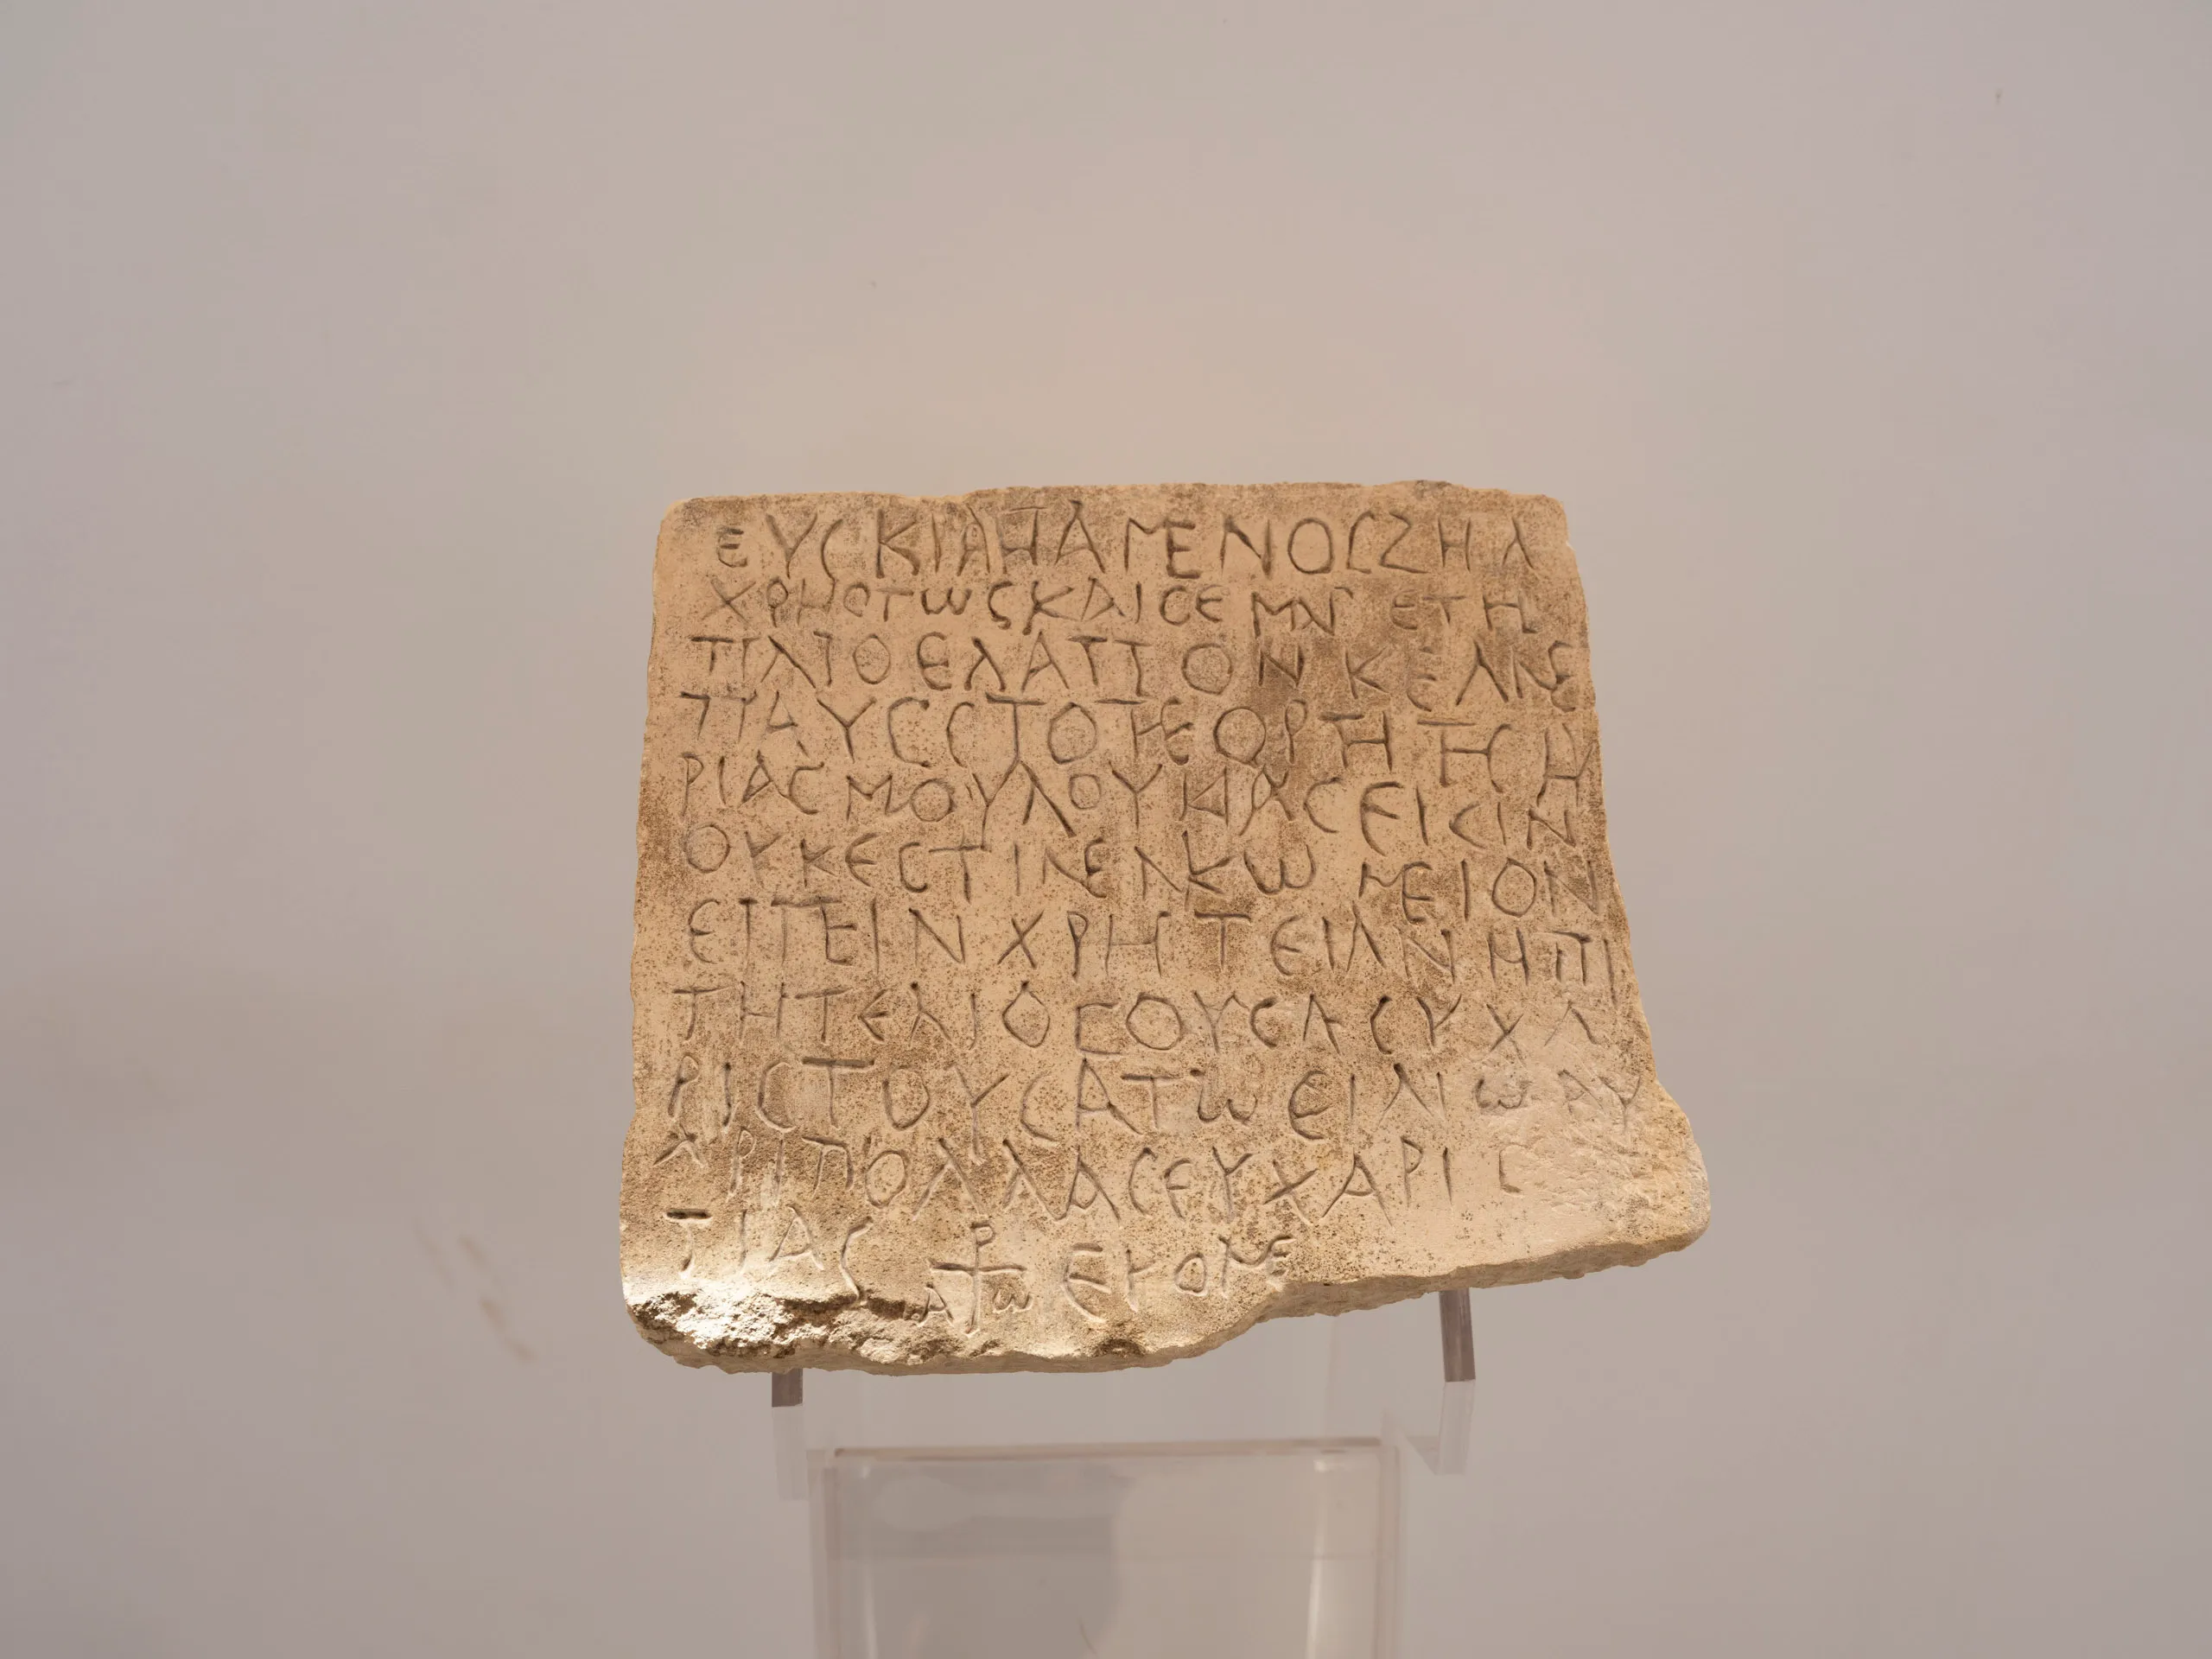 ΕΥCΚΙΑΗΑΜΕΝΟCΖΗΑ
ΧΡΗCΤωCΚΑΙCΕΜΝC ΕΤΗ
ΠΛΙΟΕΛΑΤΤΟΝ ΚΕ ΑΝΕ
ΠΑΥCCΤΟΤΗΕΟΡΤΗΤΗCΚΥ
ΡΙΑCΜΟΥΛΟΥΚΙΑCΕΙCΗΝ
ΟΥΚΕCΤΙΝΕΝΚωΜΕΙΟΝ
ΕΙΠΕΙΝΧΡΗCΤΕΙΑΝΗΠΙ
ΤΗΤΕΛΙΟCΟΥCΑCΥΧΑ
ΡΙCΤΟΥCΑΤωΕΙΛΙωΑΥ
ΑΡΙΠΟΛΛΑCΕΥΧΑΡΙC
ΤΙΑC Α⳨ω